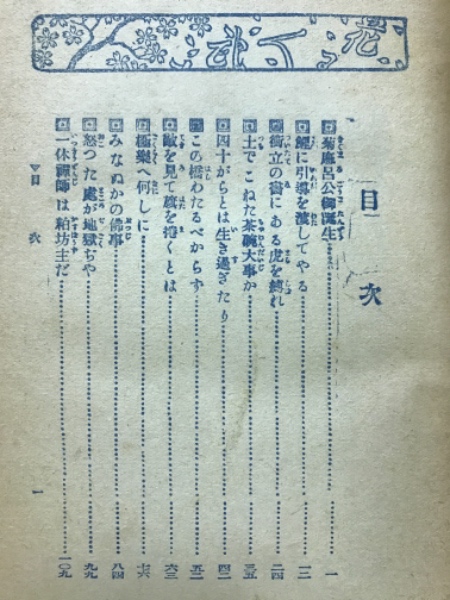 目次
菊麿呂公御誕生 一
鯉に引導を渡してやる 一二
衝立の畵にある虎を縛れ 二四
土でこねた茶碗大事か 三五
四十がらとは生き過ぎたり 四二
この橋わたるべからず 五二
敵を見て旗を捲くとは 六三
極樂へ何しに 七六
みなぬかの佛事 八四
怒つた處が地獄ぢや 九九
一休禪師は粕坊主だ 一〇九
目次
一